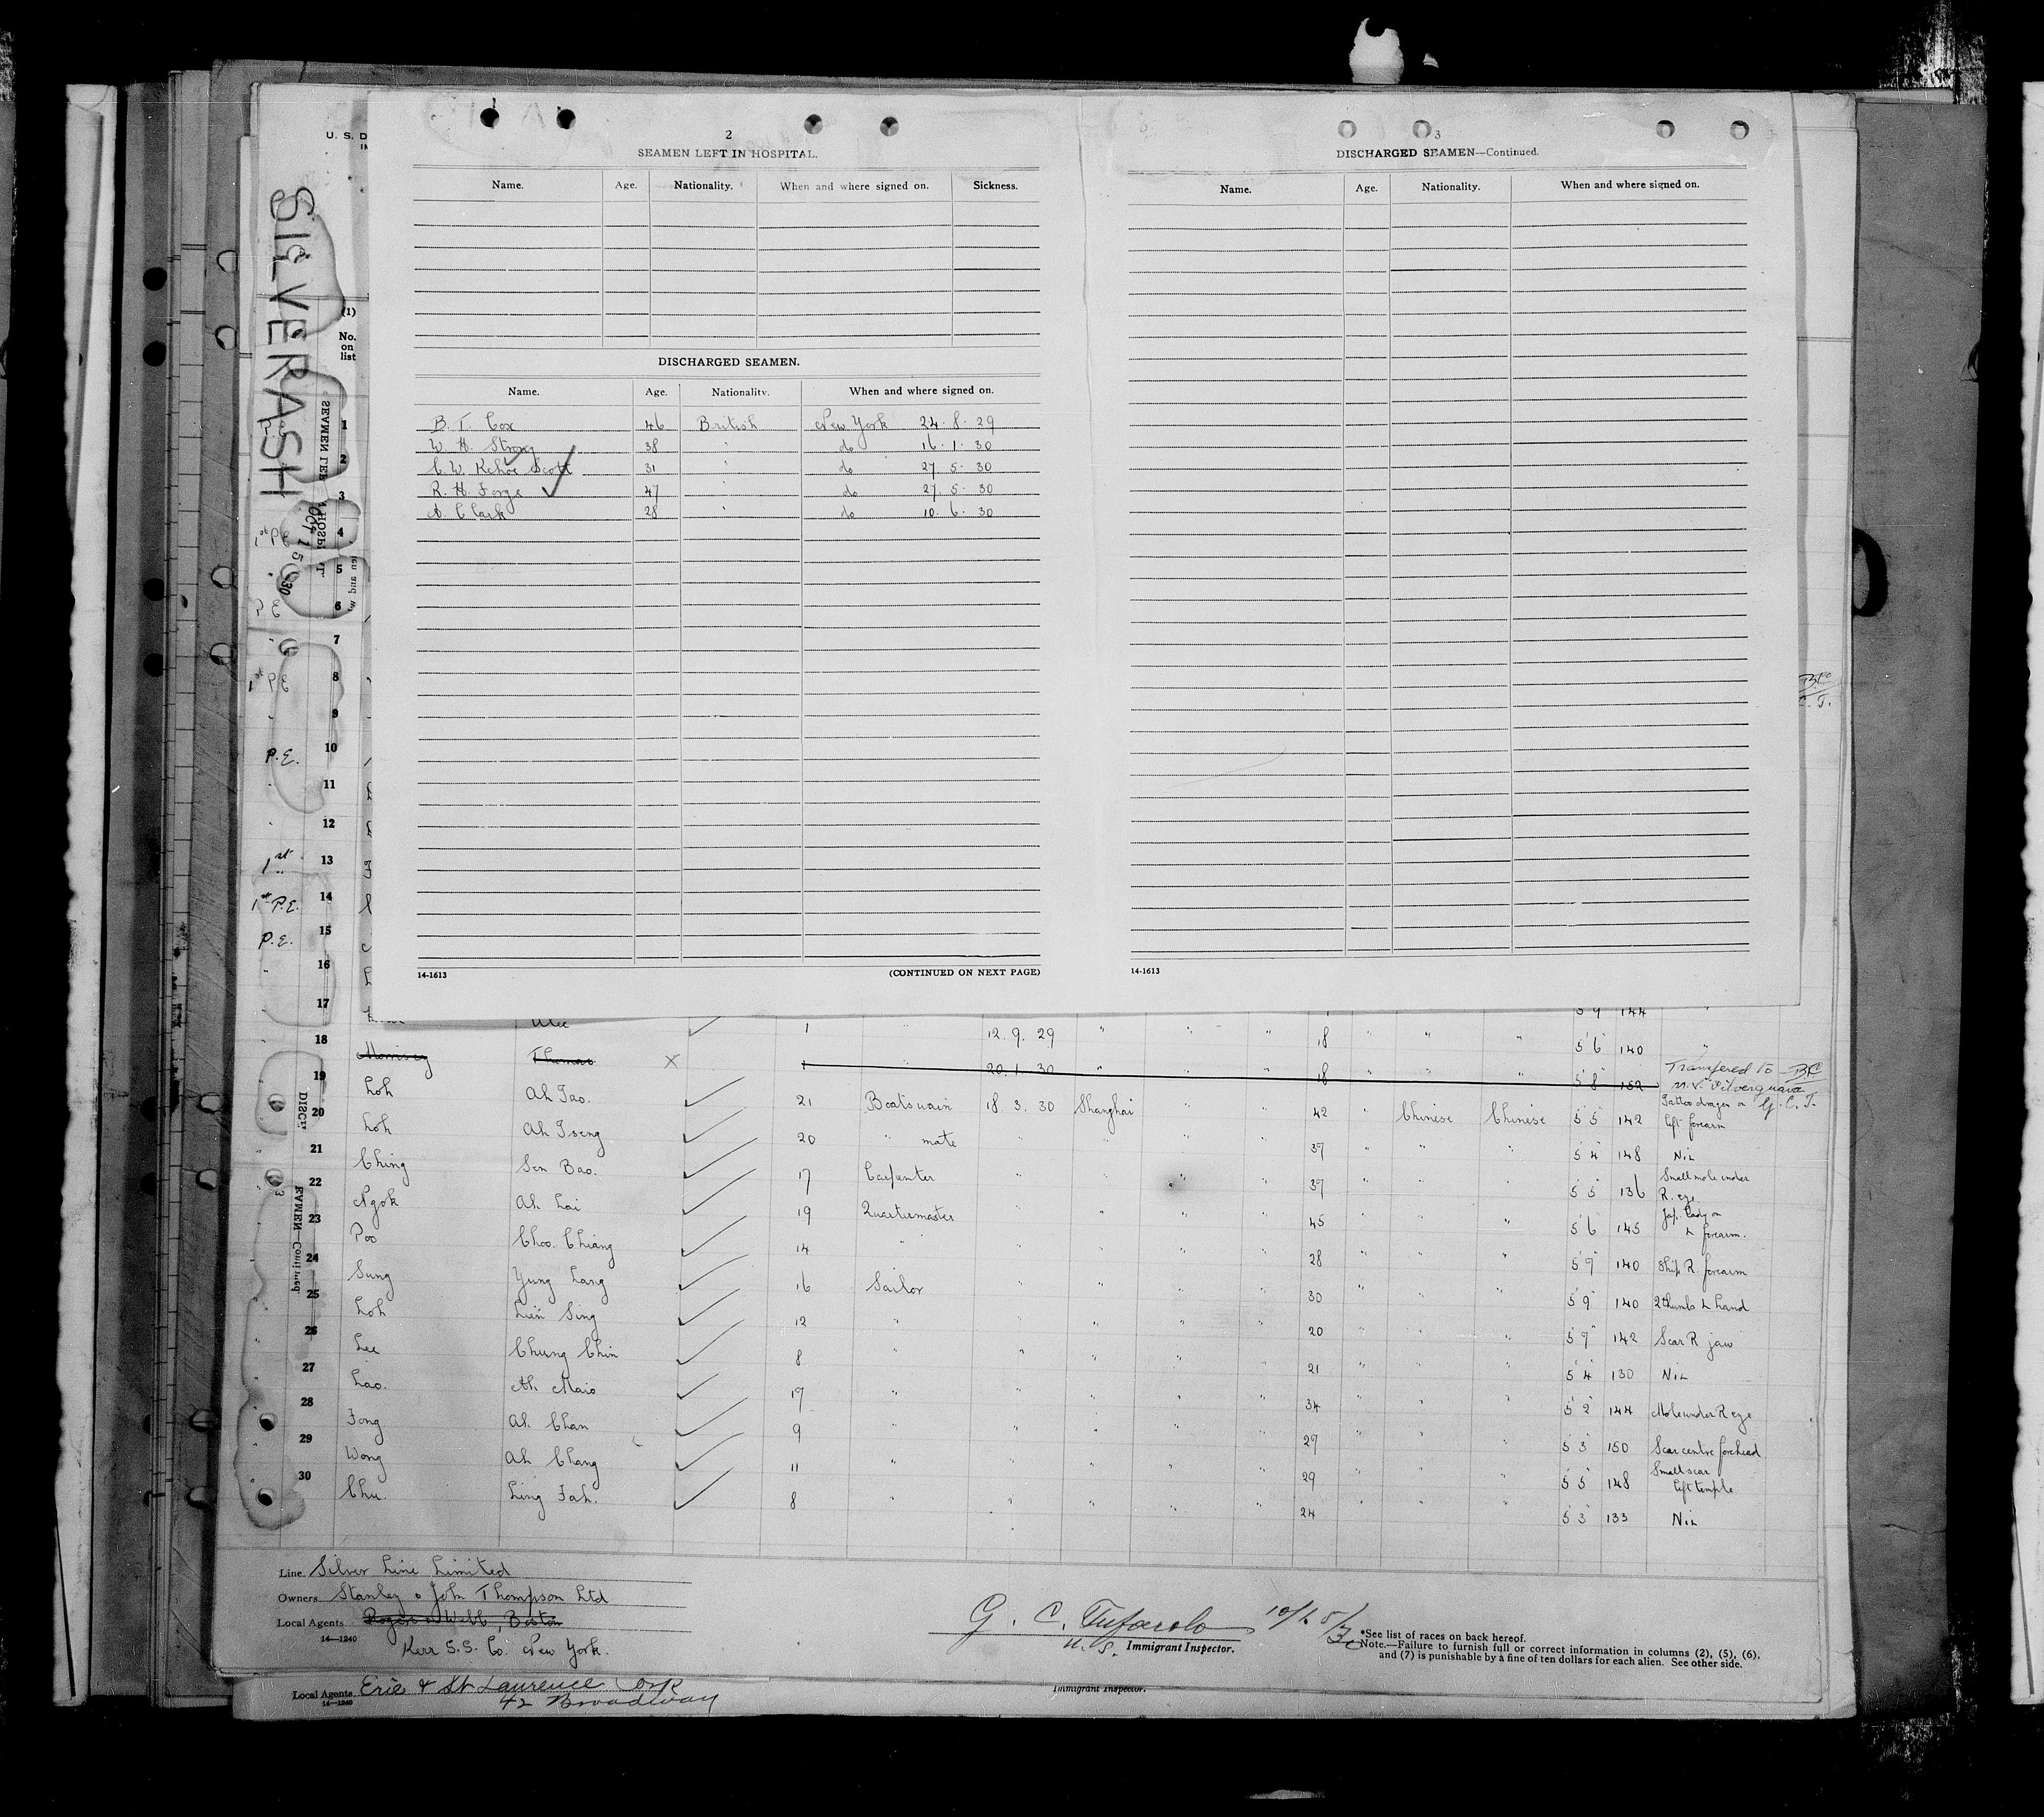 2
SEAMEN LEFT IN HOSPITAL.
Name. Age. Nationality. When and where signed on. Sickness.
DISCHARGED SEAMEN.
Name. Age. Nationality. When and where signed on.
B. T. Cox 46 British New York 24. 8. 29
W. H. Strong 38 " do 16. 1. 30
C. W. Kehoe Scott 31 " do 27. 5. 30
R. H. Forge 47 " do 27. 5. 30
A. Clark 28 " do 10. 6. 30
14-1613 (CONTINUED ON NEXT PAGE)
3
DISCHARGED SEAMEN—Continued.
Name. Age. Nationality. When and where signed on.
14-1613
U. S. D
SILVERASH
OCT 15 1930
(1)
No. on list
1
2
3
4
5
6
7
8
9
10 P.E.
11
12
13 1st
14 1st P.E.
15 P.E.
16
17
18
19
20
21
22
23
24
25
26
27
28
29
30
1 12. 9. 29 " " " 18 " " " 5 6 140 "
Morrisey Thomas X 1 20. 1. 30 " 18 5 8 152 Transfered to
Loh Ah Tao. 21 Boatswain 18. 3. 30 Shanghai " " 42 " Chinese Chinese 5 5 142 Tattoo dragon on left forearm
Loh Ah Tseng 20 " mate " " " " 37 " " " 5 4 148 Nil
Ching Sen Bao. 17 Carpenter " " " " 37 " " " 5 5 136 Small mole under R. eye
Ngok Ah Lai 19 Quartermaster " " " " 45 " " " 5 6 145 Jap. Lady on L forearm.
Poo Choo Chiang 14 " " " " " 28 " " " 5 7 140 Ship R. forearm
Sung Yung Lang 16 Sailor " " " " 30 " " " 5 9 140 2 thumbs L hand
Loh Lien Sing 12 " " " " " 20 " " " 5 7 142 Scar R jaw
Lee Chung Chin 8 " " " " " 21 " " " 5 4 130 Nil
Lao. Ah Maio 17 " " " " " 34 " " " 5 2 144 Mole under R eye
Fong Ah Chan 9 " " " " " 27 " " " 5 3 150 Scar centre forehead
Wong Ah Chang 11 " " " " " 29 " " " 5 5 148 Small scar left temple
Chu. Ling Fah. 8 " " " " " 24 " " " 5 3 133 Nil
Line Silver Line Limited
Owners Stanley & John Thompson Ltd
Local Agents Rogers & Webb, Boston
14—1240
Kerr S.S. Co. New York.
U. S. Immigrant Inspector.
*See list of races on back hereof.
Note.—Failure to furnish full or correct information in columns (2), (5), (6),
and (7) is punishable by a fine of ten dollars for each alien. See other side.
Local Agents Erie & St Laurence Corp
14—1240
42 Broadway
Immigrant Inspector.